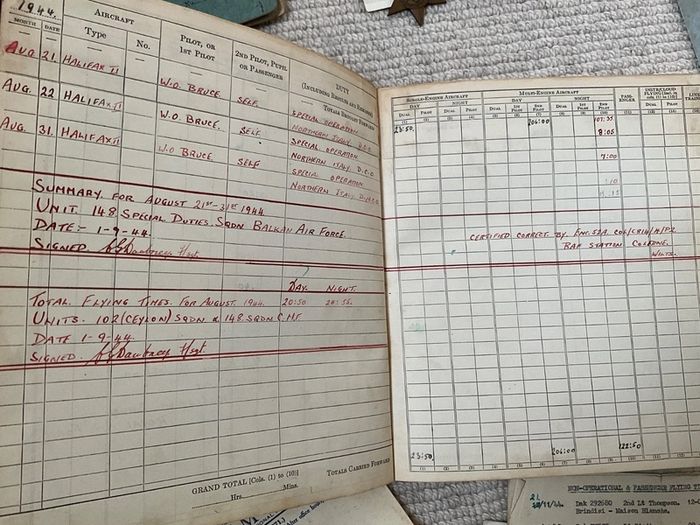 1944.
AIRCRAFT
PILOT, OR
1ST PILOT
2ND PILOT, PUPIL
OR PASSENGER
DUTY
(INCLUDING RESULTS AND REMARKS)
MONTH DATE Type No.
TOTALS BROUGHT FORWARD
AUG 21. HALIFAX II W.O. BRUCE SELF SPECIAL OPERATION
NORTHERN ITALY D.C.O
AUG. 22 HALIFAX II W.O. BRUCE. SELF SPECIAL OPERATION
NORTHERN ITALY, D.C.O
AUG. 31. HALIFAX II W.O BRUCE SELF SPECIAL OPERATION
NORTHERN ITALY
SUMMARY FOR AUGUST 21ST-31ST 1944
UNIT. 148 SPECIAL DUTIES. SQDN BALKAN AIR FORCE.
DATE:- 1-9-44.
SIGNED
DAY. NIGHT.
TOTAL FLYING TIMES FOR AUGUST. 1944. 20:50
UNITS. 102 (CEYLON) SQDN & 148 SQDN C.M.F.
DATE 1-9-44.
SIGNED
GRAND TOTAL [Cols. (1) to (10)]
Hrs. Mins.
TOTALS CARRIED FORWARD
SINGLE-ENGINE AIRCRAFT MULTI-ENGINE AIRCRAFT
DAY NIGHT DAY NIGHT
DUAL PILOT DUAL PILOT DUAL 1ST PILOT 2ND PILOT DUAL 1ST PILOT 2ND PILOT
PASSENGER
23:50. 206:00 107:35
8:05
7:00
CERTIFIED CORRECT BY
RAF STATION
WILTS.
23:50 206:00 122:50
NON-OPERATIONAL & PASSENGER FLYING
Dak 292680 2nd Lt Thompson.
Brindisi - Maison Blanche.